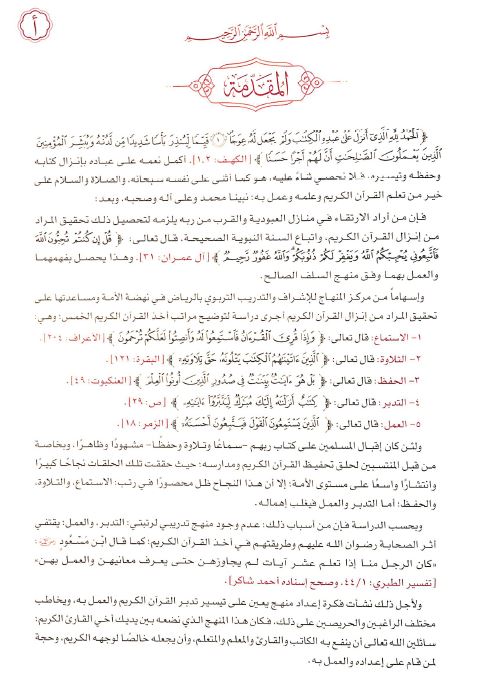 أ
بِسْمِ اللَّهِ الرَّحْمَنِ الرَّحِيمِ
المقدمة
﴿ الْحَمْدُ لِلَّهِ الَّذِي أَنزَلَ عَلَىٰ عَبْدِهِ الْكِتَابَ وَلَمْ يَجْعَل لَّهُ عِوَجًا ۝١ قَيِّمًا لِّيُنذِرَ بَأْسًا شَدِيدًا مِّن لَّدُنْهُ وَيُبَشِّرَ الْمُؤْمِنِينَ
الَّذِينَ يَعْمَلُونَ الصَّالِحَاتِ أَنَّ لَهُمْ أَجْرًا حَسَنًا ﴾ [الكهف: ١،٢]. أكمل نعمه على عباده بإنزال كتابه
وحفظه وتيسيره، فلا نحصي ثناءً عليه، هو كما أثنى على نفسه سبحانه، والصلاة والسلام على
خير من تعلم القرآن الكريم وعلمه وعمل به: نبينا محمد وعلى آله وصحبه، وبعد:
فإن من أراد الارتقاء في منازل العبودية والقرب من ربه يلزمه لتحصيل ذلك تحقيق المراد
من إنزال القرآن الكريم، واتباع السنة النبوية الصحيحة، قال تعالى: ﴿ قُلْ إِن كُنتُمْ تُحِبُّونَ اللَّهَ
فَاتَّبِعُونِي يُحْبِبْكُمُ اللَّهُ وَيَغْفِرْ لَكُمْ ذُنُوبَكُمْ وَاللَّهُ غَفُورٌ رَّحِيمٌ ﴾ [آل عمران: ٣١]. وهذا يحصل بفهمهما
والعمل بهما وفق منهج السلف الصالح.
وإسهاماً من مركز المنهاج للإشراف والتدريب التربوي بالرياض في نهضة الأمة ومساعدتها على
تحقيق المراد من إنزال القرآن الكريم أجرى دراسة لتوضيح مراتب أخذ القرآن الكريم الخمس؛ وهي:
١- الاستماع: قال تعالى: ﴿ وَإِذَا قُرِئَ الْقُرْءَانُ فَاسْتَمِعُوا لَهُ وَأَنصِتُوا لَعَلَّكُمْ تُرْحَمُونَ ﴾ [الأعراف: ٢٠٤].
٢- التلاوة: قال تعالى: ﴿ الَّذِينَ ءَاتَيْنَاهُمُ الْكِتَابَ يَتْلُونَهُ حَقَّ تِلَاوَتِهِ ﴾ [البقرة: ١٢١].
٣- الحفظ: قال تعالى: ﴿ بَلْ هُوَ ءَايَاتٌ بَيِّنَاتٌ فِي صُدُورِ الَّذِينَ أُوتُوا الْعِلْمَ ﴾ [العنكبوت: ٤٩].
٤- التدبر: قال تعالى: ﴿ كِتَابٌ أَنزَلْنَاهُ إِلَيْكَ مُبَارَكٌ لِّيَدَّبَّرُوا ءَايَاتِهِ ﴾ [ص: ٢٩].
٥- العمل: قال تعالى: ﴿ الَّذِينَ يَسْتَمِعُونَ الْقَوْلَ فَيَتَّبِعُونَ أَحْسَنَهُ ﴾ [الزمر: ١٨].
ولئن كان إقبال المسلمين على كتاب ربهم -سماعًا وتلاوة وحفظًا- مشهودًا وظاهرًا، وبخاصة
من قبل المنتسبين لحلق تحفيظ القرآن الكريم ومدارسه؛ حيث حققت تلك الحلقات نجاحًا كبيرًا
وانتشارًا واسعًا على مستوى الأمة؛ إلا أن هذا النجاح ظل محصورًا في رتب: الاستماع، والتلاوة،
والحفظ؛ أما التدبر والعمل فيغلب إهماله.
وبحسب الدراسة فإن من أسباب ذلك: عدم وجود منهج تدريبي لرتبتي: التدبر، والعمل؛ يقتفي
أثر الصحابة رضوان الله عليهم وطريقتهم في أخذ القرآن الكريم؛ كما قال ابْن مَسْعُودٍ رضي الله عنه:
«كان الرجل منا إذا تعلم عشر آيات لم يجاوزهن حتى يعرف معانيهن والعمل بهن»
[تفسير الطبري: ٤٤/١، وصحح إسناده أحمد شاكر].
ولأجل ذلك نشأت فكرة إعداد منهج يعين على تيسير تدبر القرآن الكريم والعمل به، ويخاطب
مختلف الراغبين والحريصين على ذلك، فكان هذا المنهج الذي نضعه بين يديك أخي القارئ الكريم؛
سائلين الله تعالى أن ينفع به الكاتب والقارئ والمعلم والمتعلم، وأن يجعله خالصًا لوجهه الكريم، وحجة
لمن قام على إعداده والعمل به.